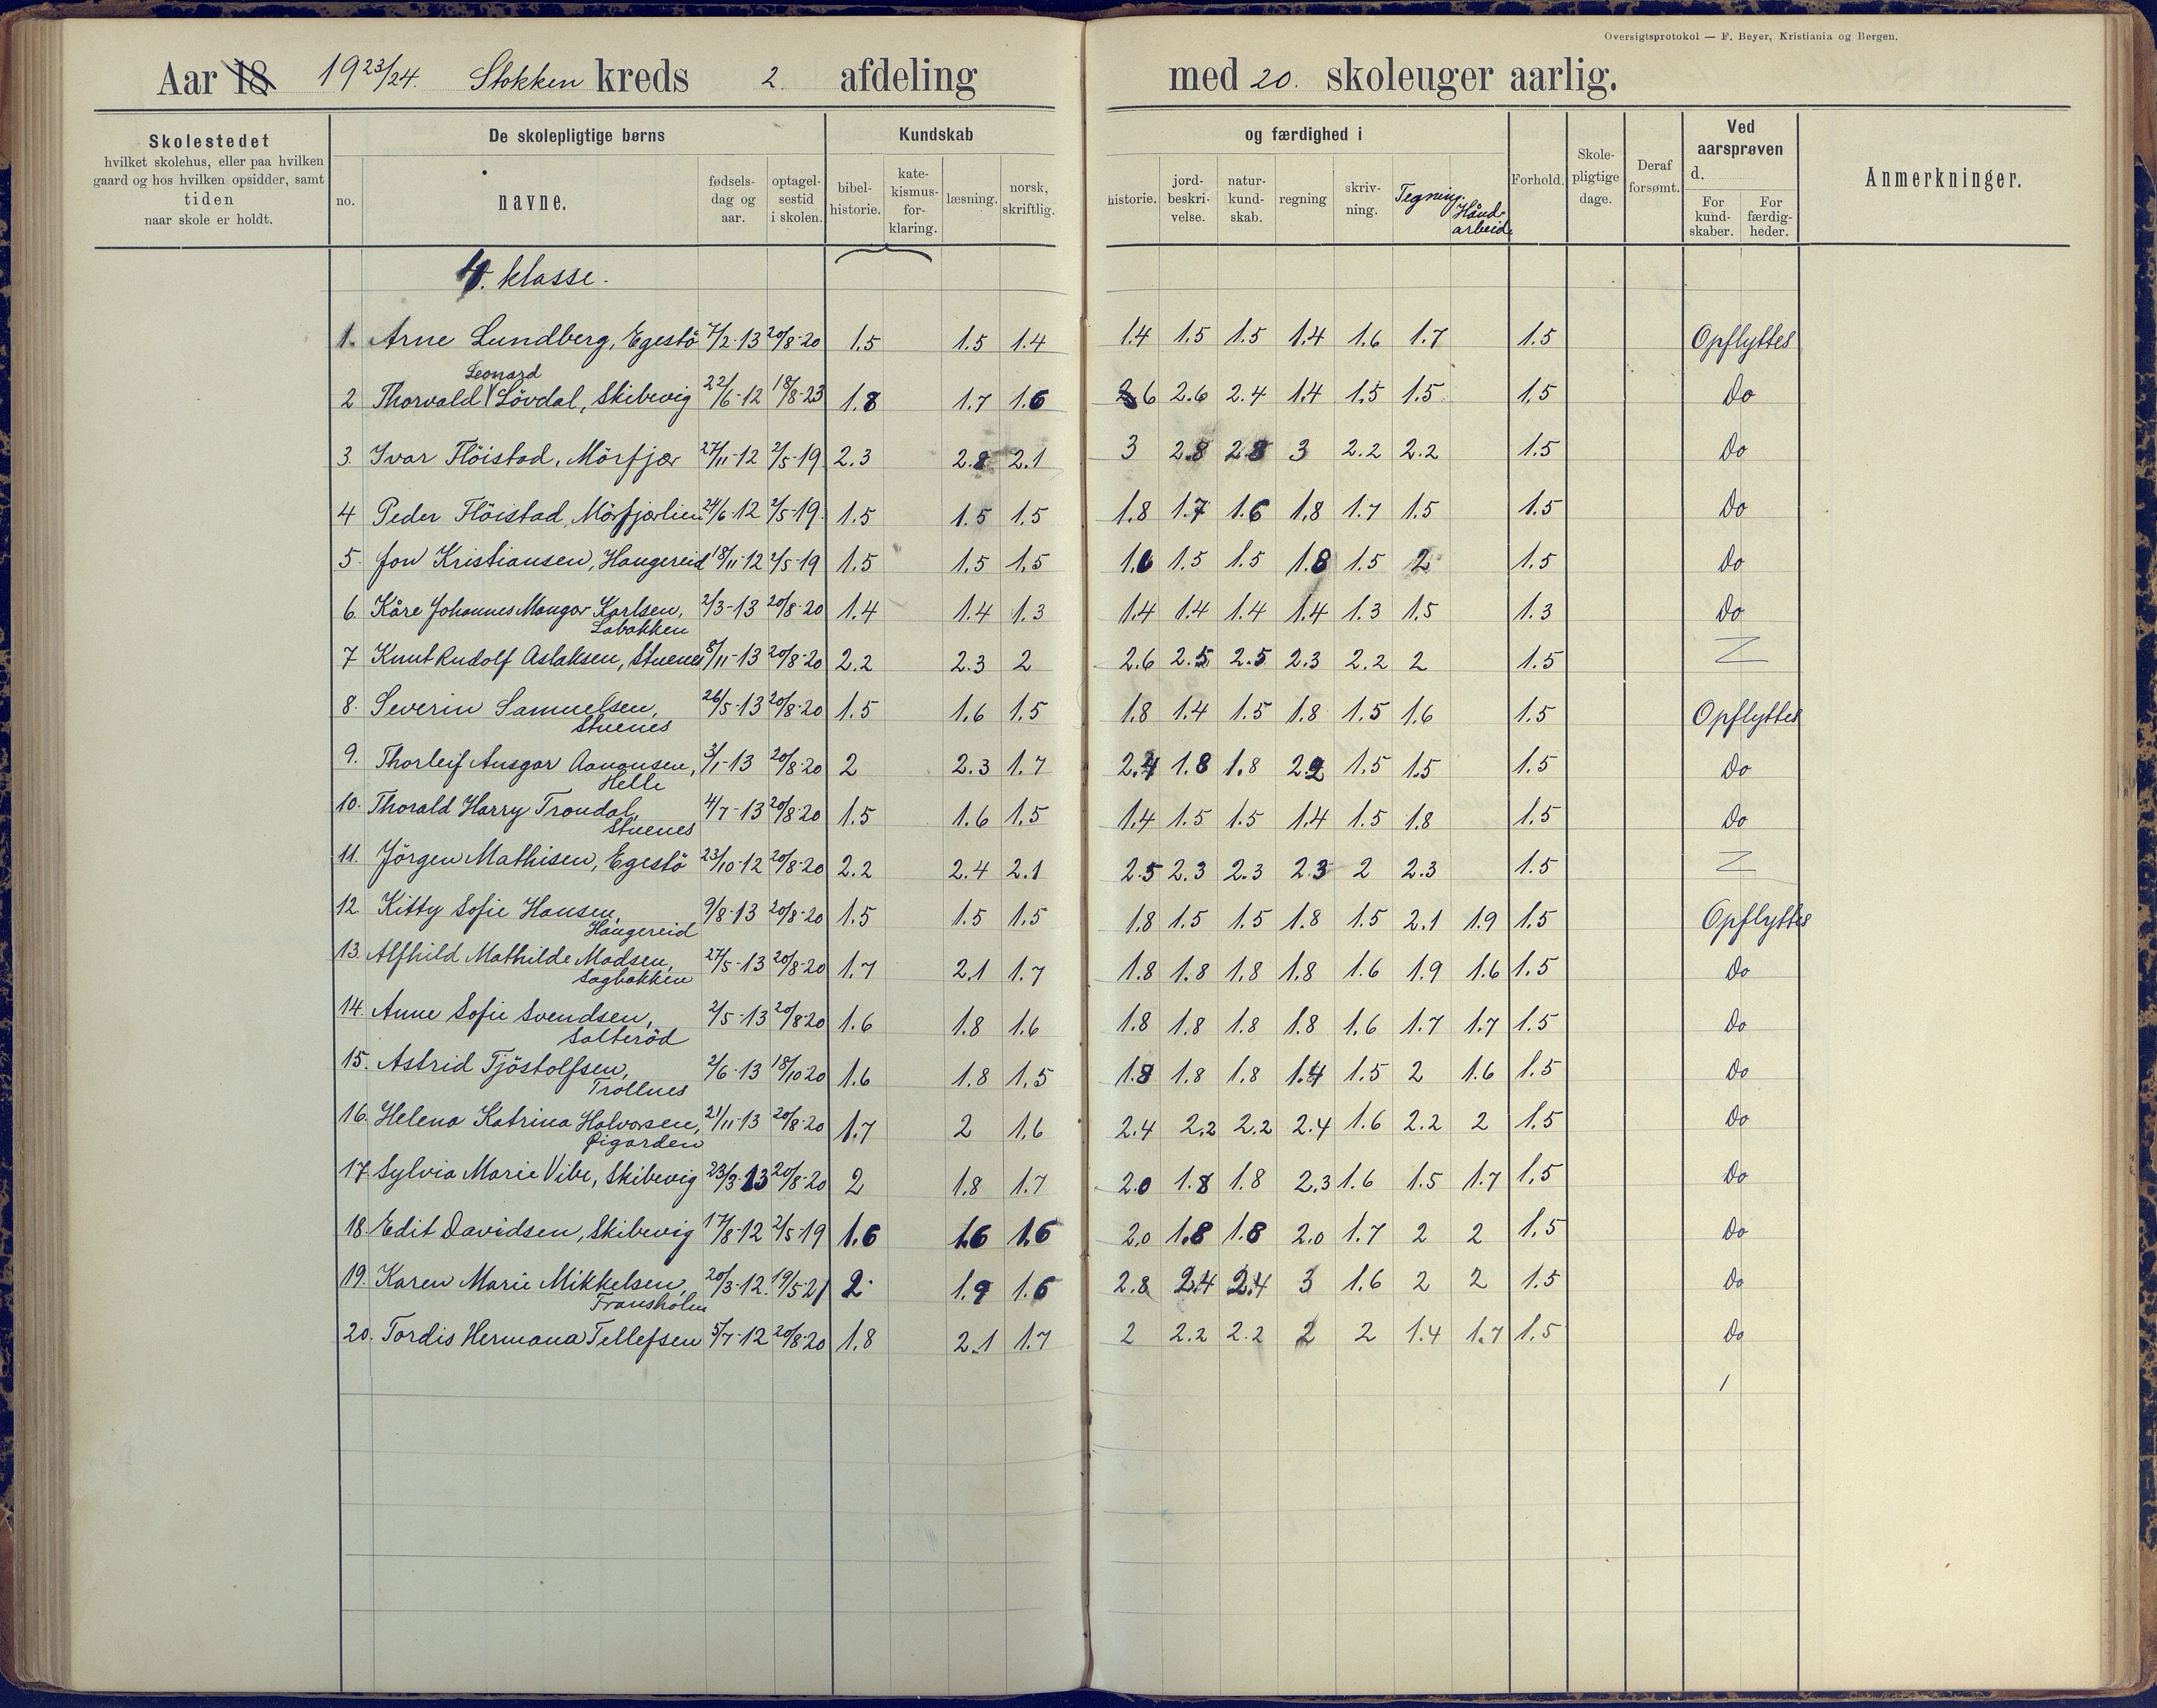 Oversigtsprotokol — F. Beyer, Kristiania og Bergen.
Aar 18 1923/24. Stokken kreds 2. afdeling med 20. skoleuger aarlig.
Skolestedet
hvilket skolehus, eller paa hvilken
gaard og hos hvilken opsidder, samt
tiden
naar skole er holdt.
De skolepligtige børns
no.
navne.
fødsels-
dag og
aar.
optagel-
sestid
i skolen.
Kundskab
bibel-
historie.
kate-
kismus-
for-
klaring.
læsning.
norsk,
skriftlig.
og færdighed i
historie.
jord-
beskri-
velse.
natur-
kund-
skab.
regning
skriv-
ning.
Tegning.
Hånd-
arbeid.
Forhold.
Skole-
pligtige
dage.
Deraf
forsømt.
Ved
aarsprøven
d.
For
kund-
skaber.
For
færdig-
heder.
Anmerkninger.
4. klasse.
1. Arne Lundberg, Egestö 7/2-13 20/8-20 1.5 1.5 1.4 1.4 1.5 1.5 1.4 1.6 1.7 1.5 Opflyttes
Leonard
2 Thorvald Lövdal, Skibevig 22/6-12 18/8-23 1.8 1.7 1.6 2.6 2.6 2.4 1.4 1.5 1.5 1.5 Do
3. Ivar Flöistad, Mörfjær 27/11-12 2/5-19 2.3 2.8 2.1 3 2.8 2.8 3 2.2 2.2 1.5 Do
4 Peder Flöistad, Mörfjærlien 24/6-12 2/5-19. 1.5 1.5 1.5 1.8 1.7 1.6 1.8 1.7 1.5 1.5 Do
5. Jon Kristiansen, Haugereid 18/11-12 2/5-19 1.5 1.5 1.5 1.6 1.5 1.5 1.8 1.5 2 1.5 Do
6. Kåre Johannes Mangor Karlsen, 2/3-13 20/8-20 1.4 1.4 1.3 1.4 1.4 1.4 1.4 1.3 1.5 1.3 Do
Labakken
7 Knut Rudolf Aslaksen, Stuenes 8/11-13 20/8-20 2.2 2.3 2 2.6 2.5 2.5 2.3 2.2 2 1.5
8. Severin Samuelsen, 26/5-13 20/8-20 1.5 1.6 1.5 1.8 1.4 1.5 1.8 1.5 1.6 1.5 Opflyttes
Stuenes
9. Thorleif Ansgar Aanonsen, 3/1-13 20/8-20 2 2.3 1.7 2.4 1.8 1.8 2.2 1.5 1.5 1.5 Do
Helle
10. Thorald Harry Trondal, 4/7-13 20/8-20 1.5 1.6 1.5 1.4 1.5 1.5 1.4 1.5 1.8 1.5 Do
Stuenes
11. Jörgen Mathisen, Egestö 23/10-12 20/8-20 2.2 2.4 2.1 2.5 2.3 2.3 2.3 2 2.3 1.5
12. Kitty Sofie Hansen, 9/8-13 20/8-20 1.5 1.5 1.5 1.8 1.5 1.5 1.8 1.5 2.1 1.9 1.5 Opflyttes
Haugereid
13. Alfhild Mathilde Madsen, 27/5-13 20/8-20 1.7 2.1 1.7 1.8 1.8 1.8 1.8 1.6 1.9 1.6 1.5 Do
Sagbakken
14. Anne Sofie Svendsen, 2/5-13 20/8-20 1.6 1.8 1.6 1.8 1.8 1.8 1.8 1.6 1.7 1.7 1.5 Do
Salteröd
15. Astrid Tjöstolfsen, 2/6-13 18/10-20 1.6 1.8 1.5 1.8 1.8 1.8 1.4 1.5 2 1.6 1.5 Do
Trollnes
16. Helena Katrina Halvorsen, 21/11-13 20/8-20 1.7 2 1.6 2.4 2.2 2.2 2.4 1.6 2.2 2 1.5 Do
Øigarden
17 Sylvia Marie Vibe, Skibevig 23/3-13 20/8-20 2 1.8 1.7 2.0 1.8 1.8 2.3 1.6 1.5 1.7 1.5 Do
18. Edit Davidsen, Skibevig 17/8-12 2/5-19 1.6 1.6 1.6 2.0 1.8 1.8 2.0 1.7 2 2 1.5 Do
19. Karen Marie Mikkelsen, 20/3-12. 19/5-21 2. 1.9 1.6 2.8 2.4 2.4 3 1.6 2 2 1.5 Do
Fransholm
20. Tordis Hermana Tellefsen 5/7-12 20/8-20 1.8 2.1 1.7 2 2.2 2.2 2 2 1.4 1.7 1.5 Do